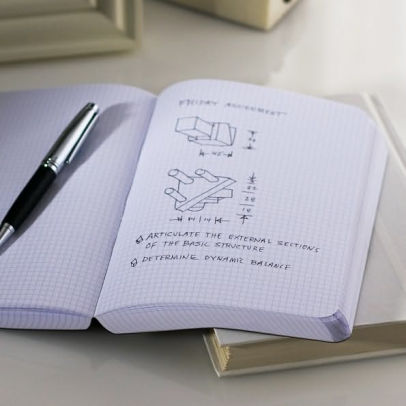 FRIDAY ASSIGNMENT
ARTICULATE THE EXTERNAL SECTIONS
OF THE BASIC STRUCTURE
DETERMINE DYNAMIC BALANCE